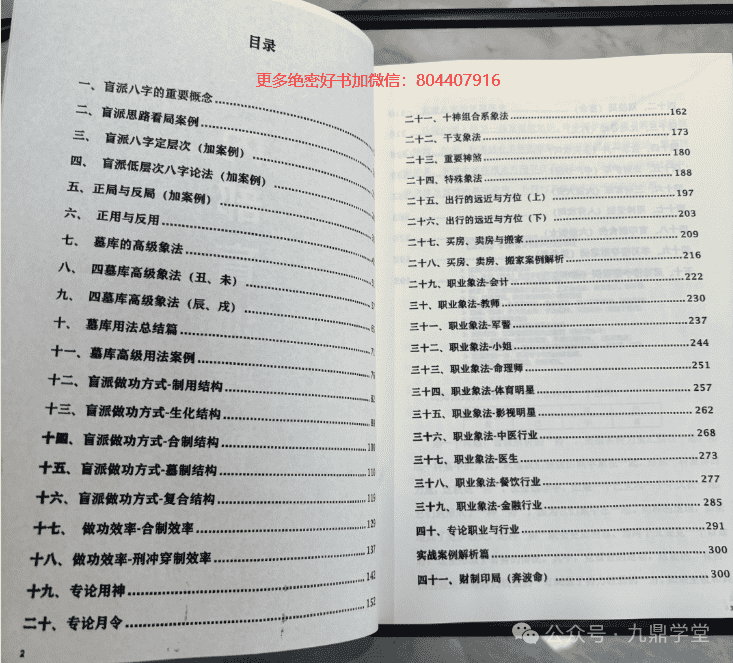 目录
更多绝密好书加微信：804407916
一、盲派八字的重要概念
二、盲派思路看局案例
三、 盲派八字定层次（加案例）
四、 盲派低层次八字论法（加案例）
五、正局与反局（加案例）
六、 正用与反用
七、 墓库的高级象法
八、 四墓库高级象法（丑、未）
九、 四墓库高级象法（辰、戌）
十、 墓库用法总结篇
十一、墓库高级用法案例
十二、盲派做功方式-制用结构
十三、盲派做功方式-生化结构
十四、盲派做功方式-合制结构 100
十五、盲派做功方式-墓制结构 110
十六、盲派做功方式-复合结构 119
十七、 做功效率-合制效率 129
十八、做功效率-刑冲穿制效率 137
十九、专论用神 142
二十、专论月令 152
2
二十一、十神组合系象法 162
二十二、干支象法 173
二十三、重要神煞 180
二十四、特殊象法 188
二十五、出行的远近与方位（上） 197
二十六、出行的远近与方位（下） 203
二十七、买房、卖房与搬家 209
二十八、买房、卖房、搬家案例解析 216
二十九、职业象法-会计 222
三十、职业象法-教师 230
三十一、职业象法-军警 237
三十二、职业象法-小姐 244
三十三、职业象法-命理师 251
三十四、职业象法-体育明星 257
三十五、职业象法-影视明星 262
三十六、职业象法-中医行业 268
三十七、职业象法-医生 273
三十八、职业象法-餐饮行业 277
三十九、职业象法-金融行业 285
四十、专论职业与行业 291
实战案例解析篇 300
四十一、财制印局（奔波命） 300
公众号·九鼎学堂